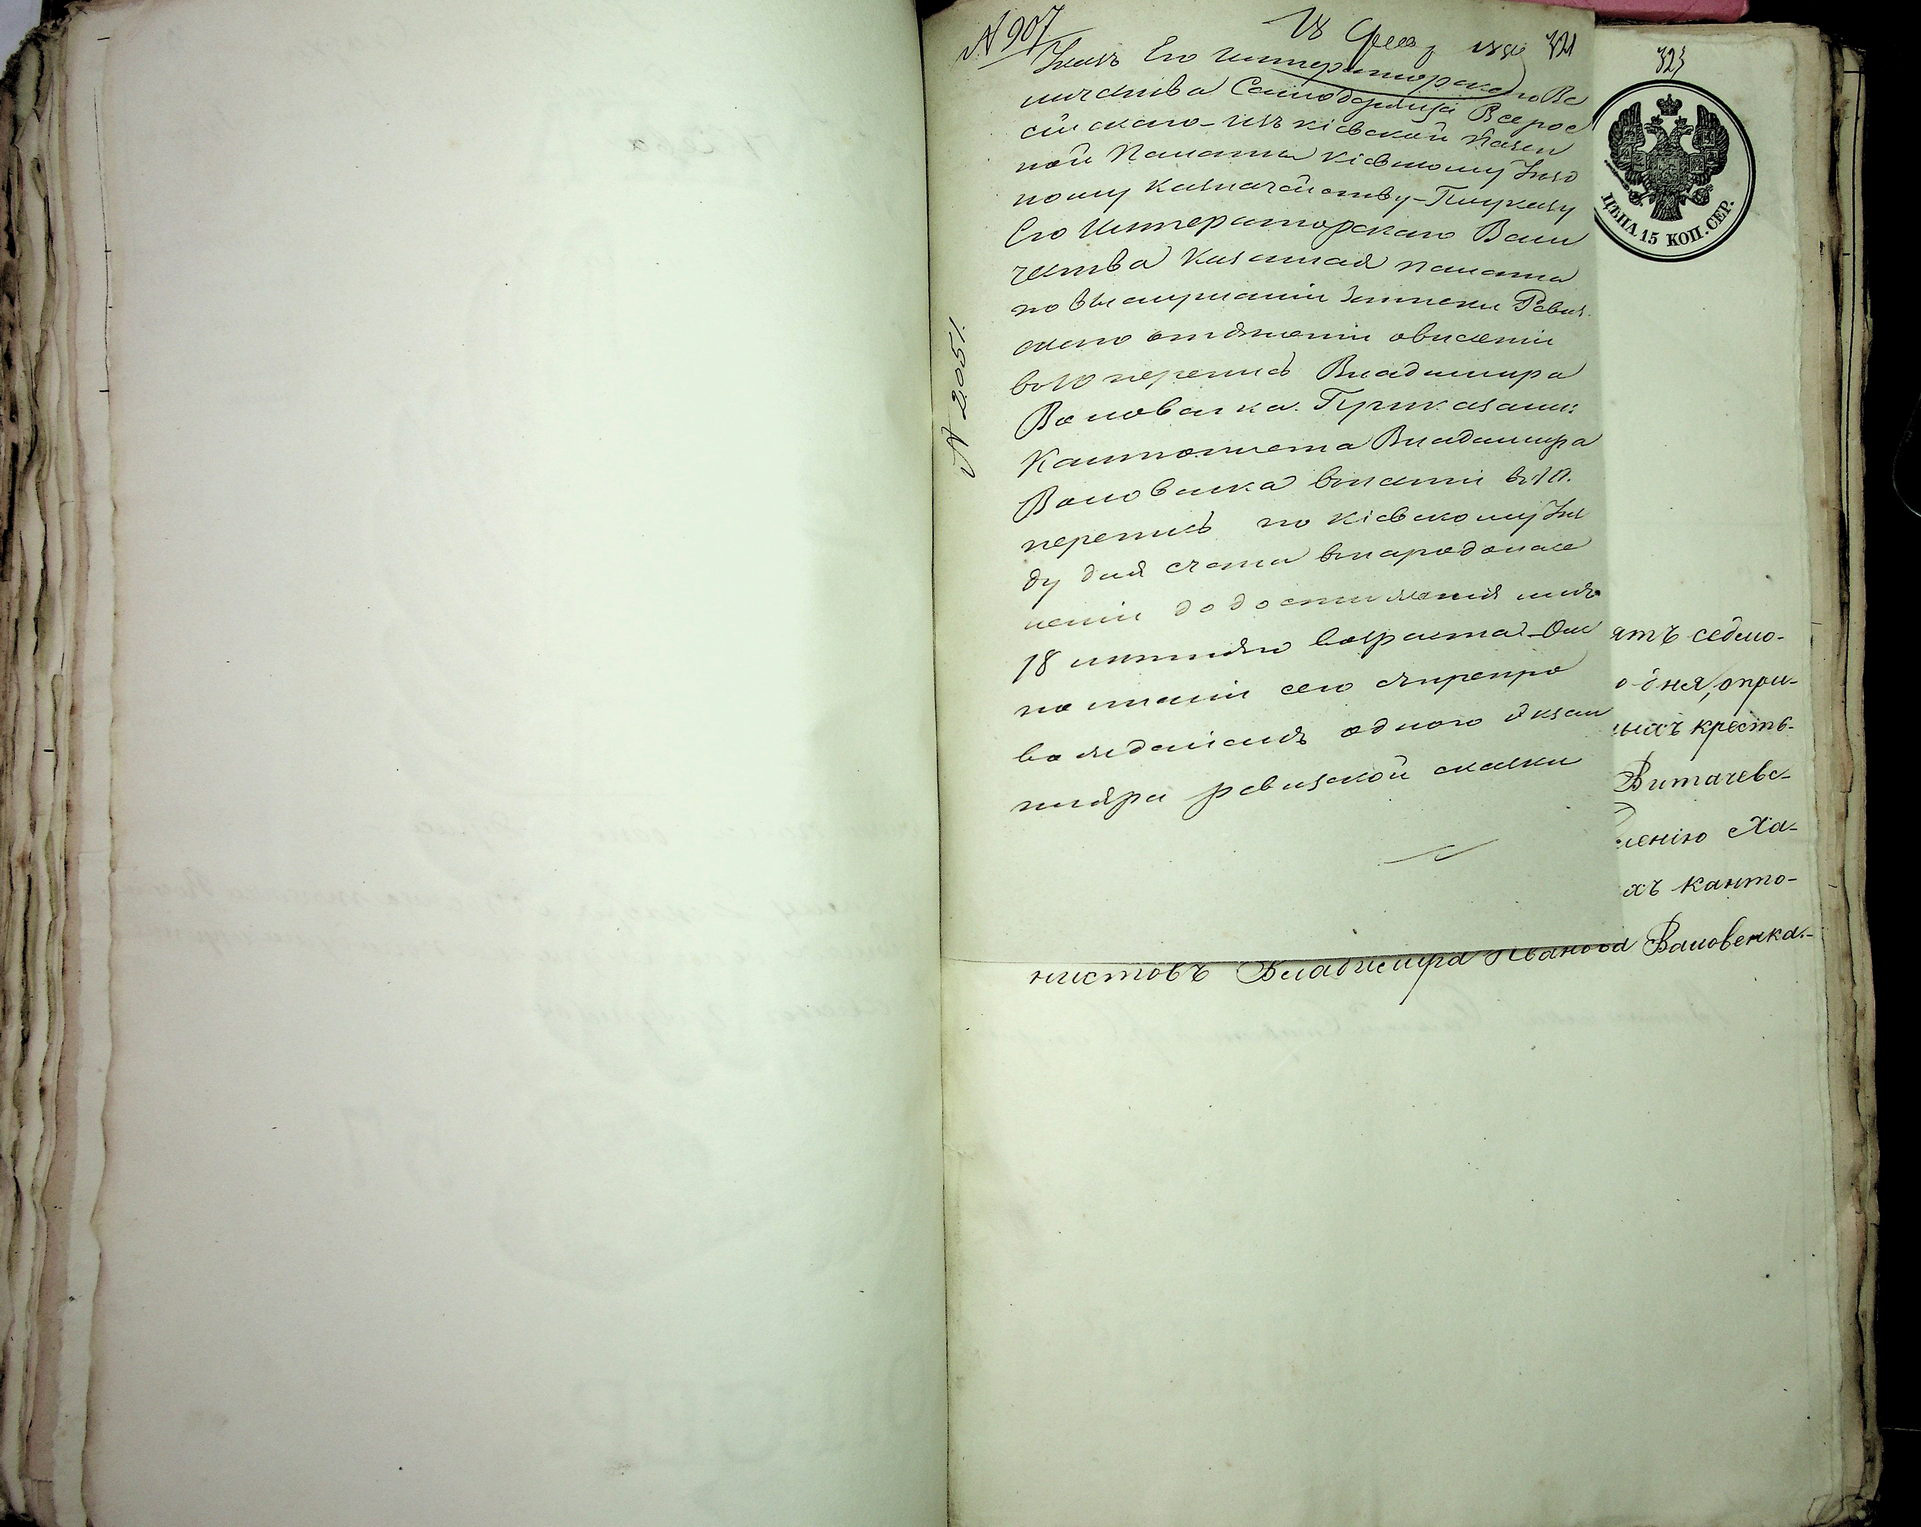 № 907
18 Февр 321
Указъ Его Императорскаго Ве
личества Самодержца Всерос
сійскаго - изъ Кіевской Казен
ной Палаты Кіевскому Уѣзд
ному Казначейству - По указу
Его Императорскаго Вели
чества Казенная палата
по выслушаніи Записки Ревиз.
скаго отдѣленія
въ 10 перепись Владимира
Валовенка. Приказали:
Кантониста Владимира
Валовенка внести въ 10.
перепись по Кіевскому Уѣз
ду для счета въ народонасе
леніи до достиженія имъ
18 лѣтняго возраста
сего съ препро
вожденіемъ одного экзем
пляра ревизской сказки
№ 2051.
323
ЦѢНА 15 КОП. СЕР.
ятъ седмо-
о дня, о при-
ныхъ кресть-
Витачевс-
ленію Ха-
хъ канто-
нистовъ Владимира Иванова Валовенка.-